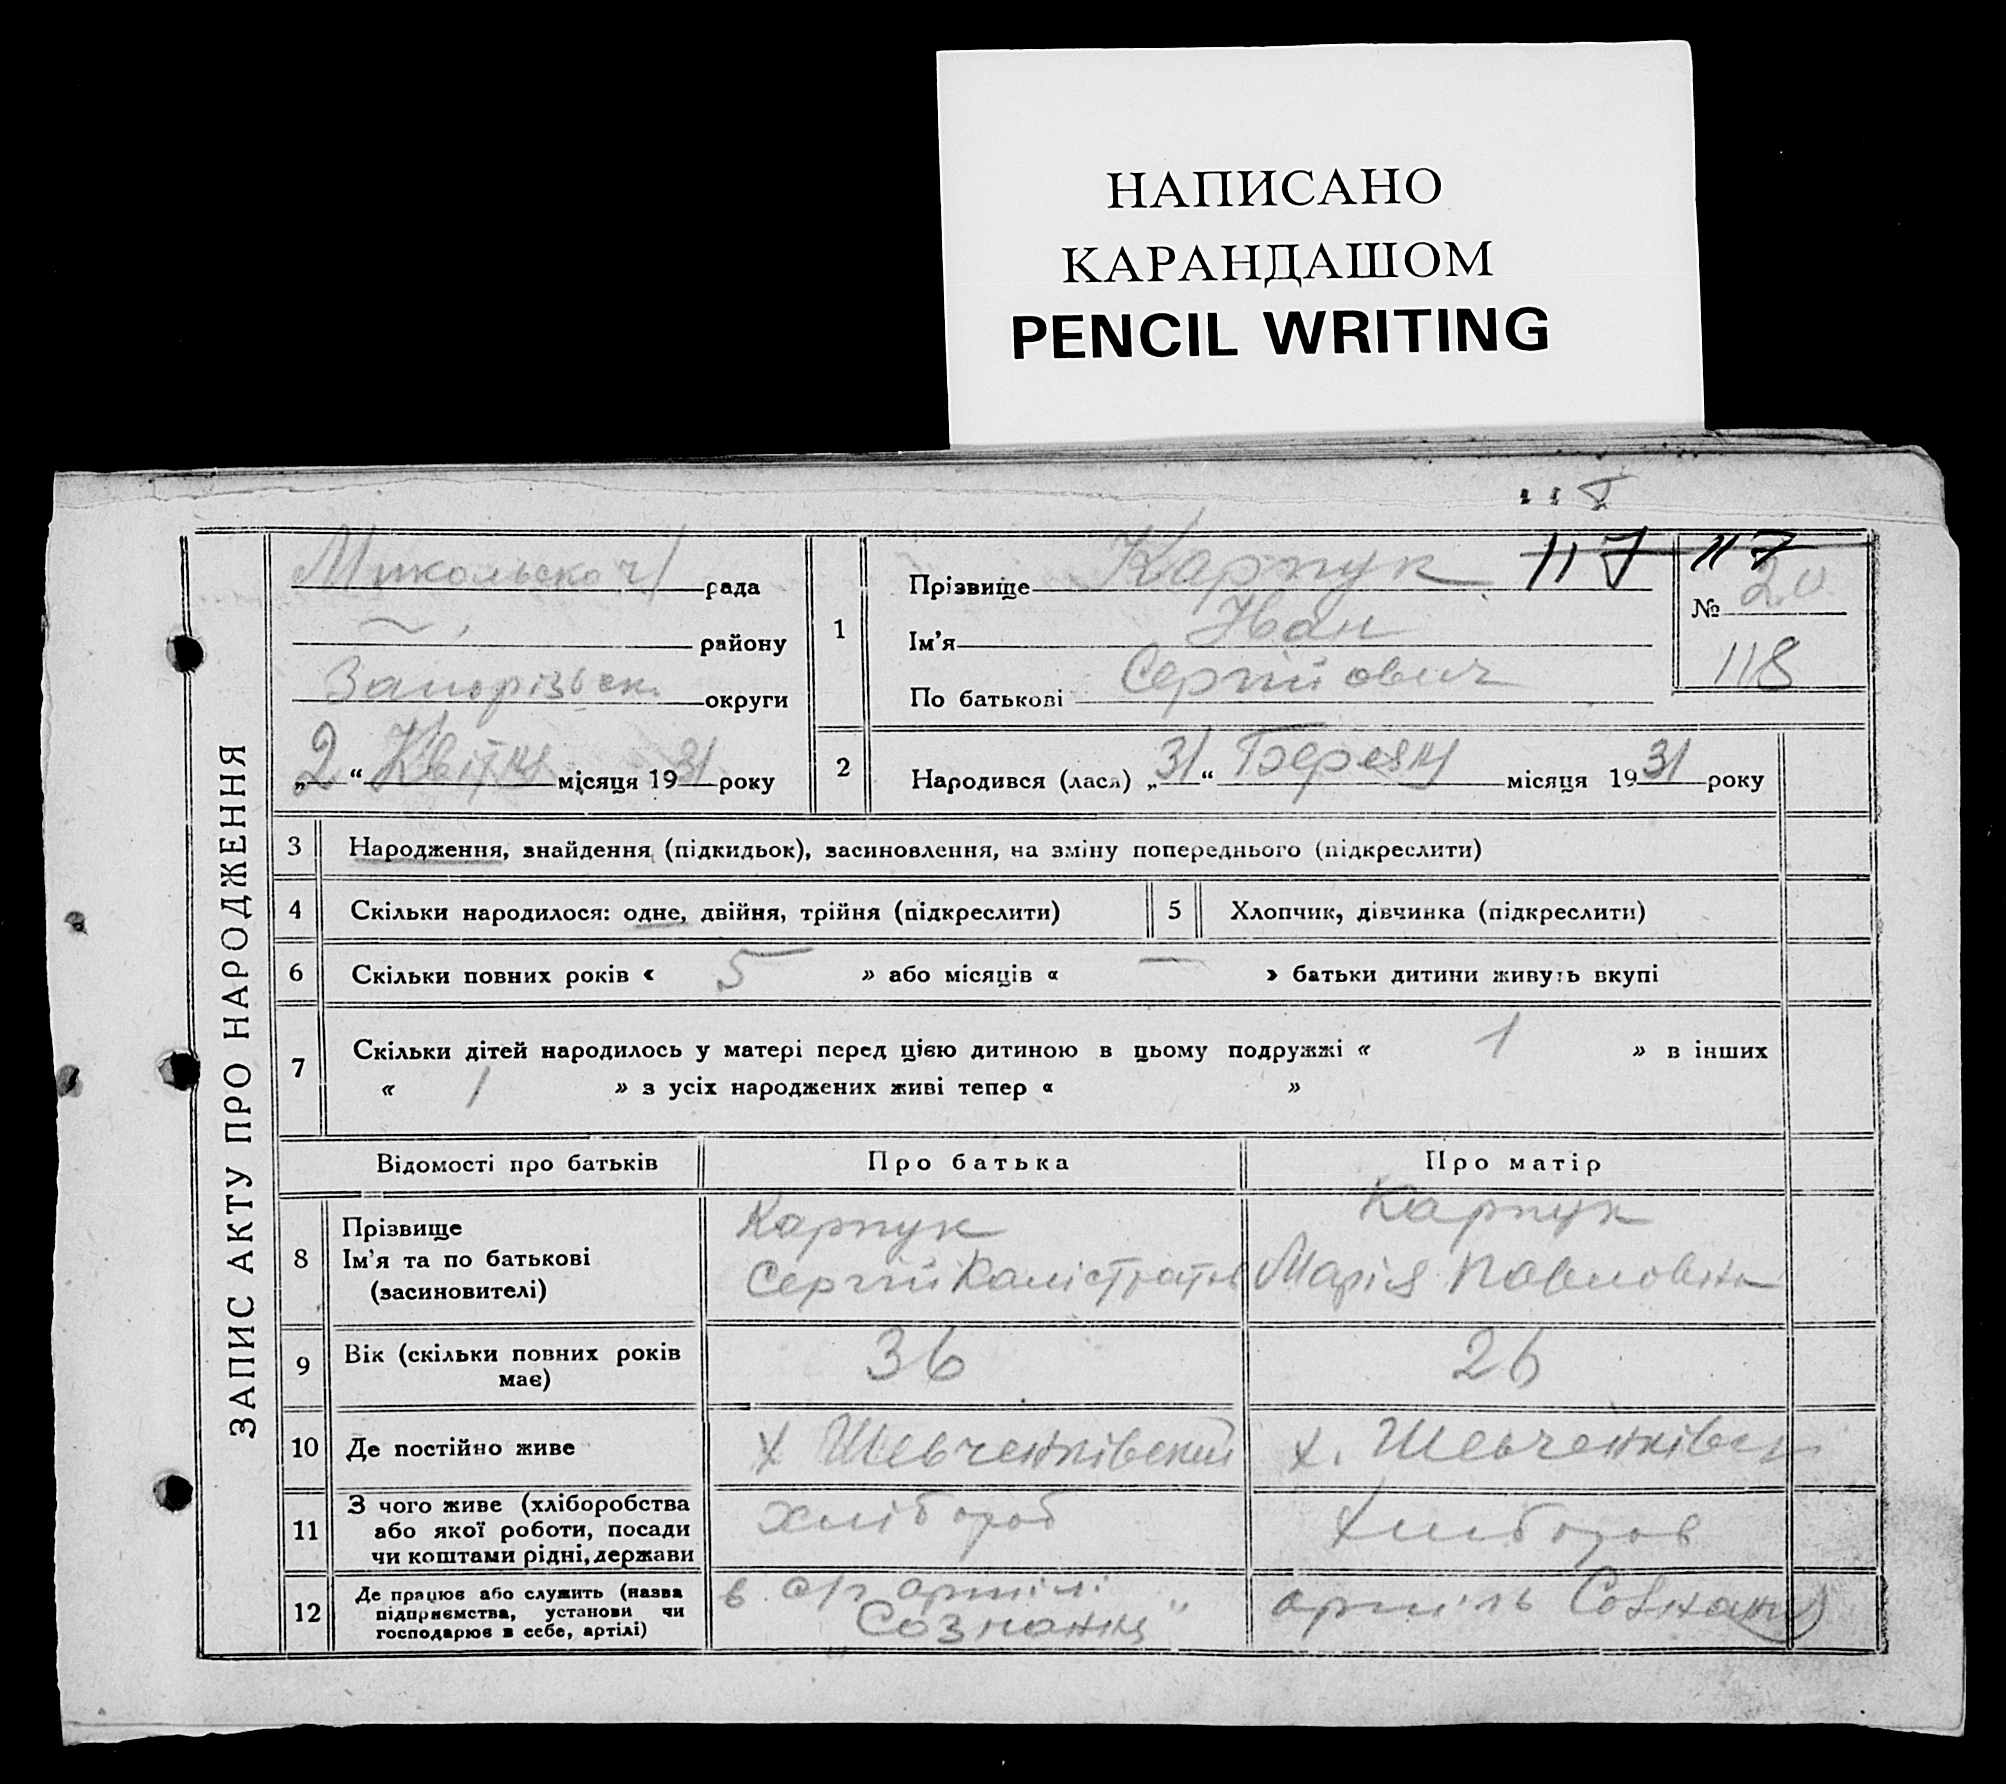 НАПИСАНО
КАРАНДАШОМ
PENCIL WRITING
ЗАПИС АКТУ ПРО НАРОДЖЕННЯ
рада
району
Запорізьск. округи
„2“ Квітня місяця 1931 року
1
Прізвище Карпук
Ім'я Іван
По батькові Сергійович
117 117
№ 20
118
2 Народився (лася) „31“ Березня місяця 1931 року
3 Народження, знайдення (підкидьок), засиновлення, на зміну попереднього (підкреслити)
4 Скільки народилося: одне, двійня, трійня (підкреслити) 5 Хлопчик, дівчинка (підкреслити)
6 Скільки повних років « 5 » або місяців « — » батьки дитини живуть вкупі
7 Скільки дітей народилось у матері перед цією дитиною в цьому подружжі « 1 » в інших
« 1 » з усіх народжених живі тепер « »
Відомості про батьків Про батька Про матір
8 Прізвище
Ім'я та по батькові
(засиновителі)
Карпук
Сергій Калістратов
Карпук
Марія Павловна
9 Вік (скільки повних років
має)
36 26
10 Де постійно живе х Шевченківский х. Шевченківск
11 З чого живе (хліборобства
або якої роботи, посади
чи коштами рідні, держави
хлібороб
12 Де працює або служить (назва
підприємства, установи чи
господарює в себе, артілі)
в с/г артілі
„Сознання“
артіль Сознання